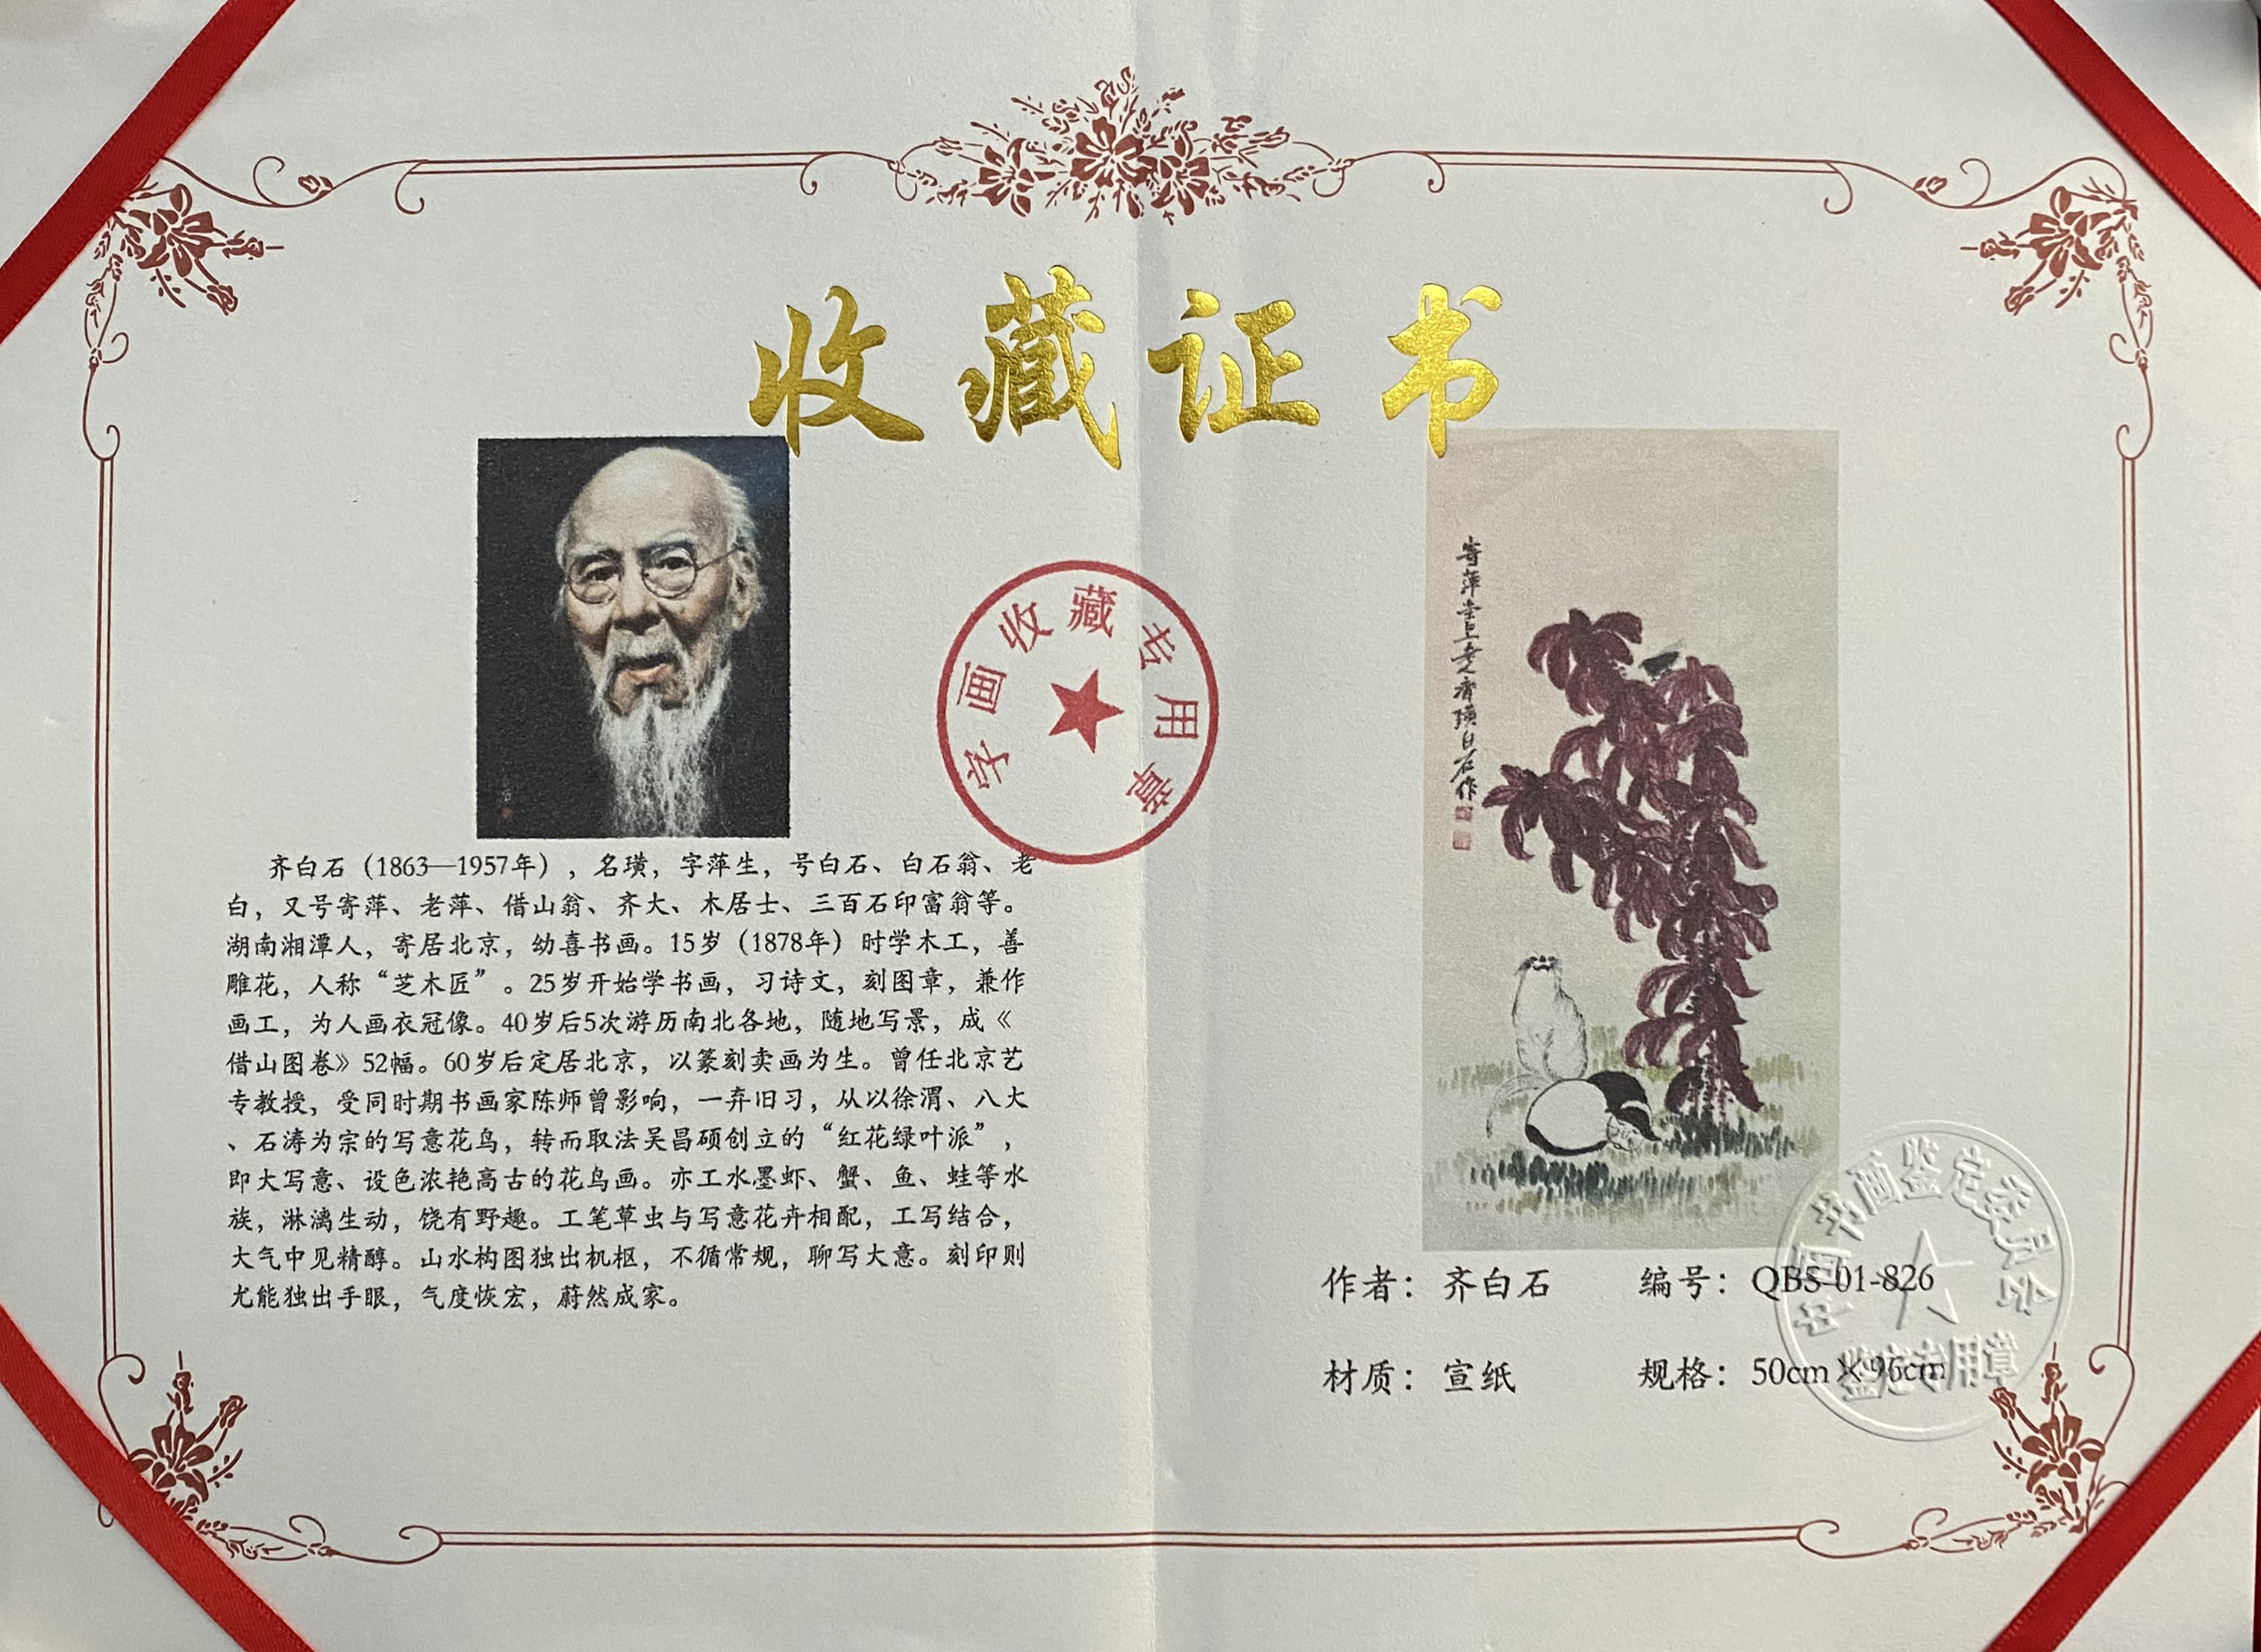 收藏证书
字画收藏专用章
齐白石（1863—1957年），名璜，字萍生，号白石、白石翁、老
白，又号寄萍、老萍、借山翁、齐大、木居士、三百石印富翁等。
湖南湘潭人，寄居北京，幼喜书画。15岁（1878年）时学木工，善
雕花，人称“芝木匠”。25岁开始学书画，习诗文，刻图章，兼作
画工，为人画衣冠像。40岁后5次游历南北各地，随地写景，成《
借山图卷》52幅。60岁后定居北京，以篆刻卖画为生。曾任北京艺
专教授，受同时期书画家陈师曾影响，一弃旧习，从以徐渭、八大
、石涛为宗的写意花鸟，转而取法吴昌硕创立的“红花绿叶派”，
即大写意、设色浓艳高古的花鸟画。亦工水墨虾、蟹、鱼、蛙等水
族，淋漓生动，饶有野趣。工笔草虫与写意花卉相配，工写结合，
大气中见精醇。山水构图独出机枢，不循常规，聊写大意。刻印则
尤能独出手眼，气度恢宏，蔚然成家。
寄萍堂上老人齊璜白石作
作者：齐白石 编号：QBS-01-826
材质：宣纸 规格：50cm×96cm
中国书画鉴定委员会
鉴定专用章